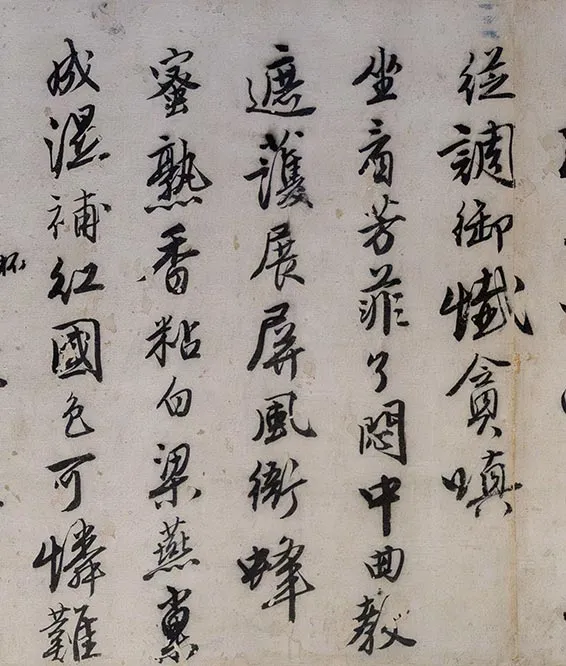 從調御懺貪嗔
坐看芳菲了悶中曲教
遮護展屏風衙蜂
蜜熟香粘白梁燕巢
成濕補紅國色可憐難